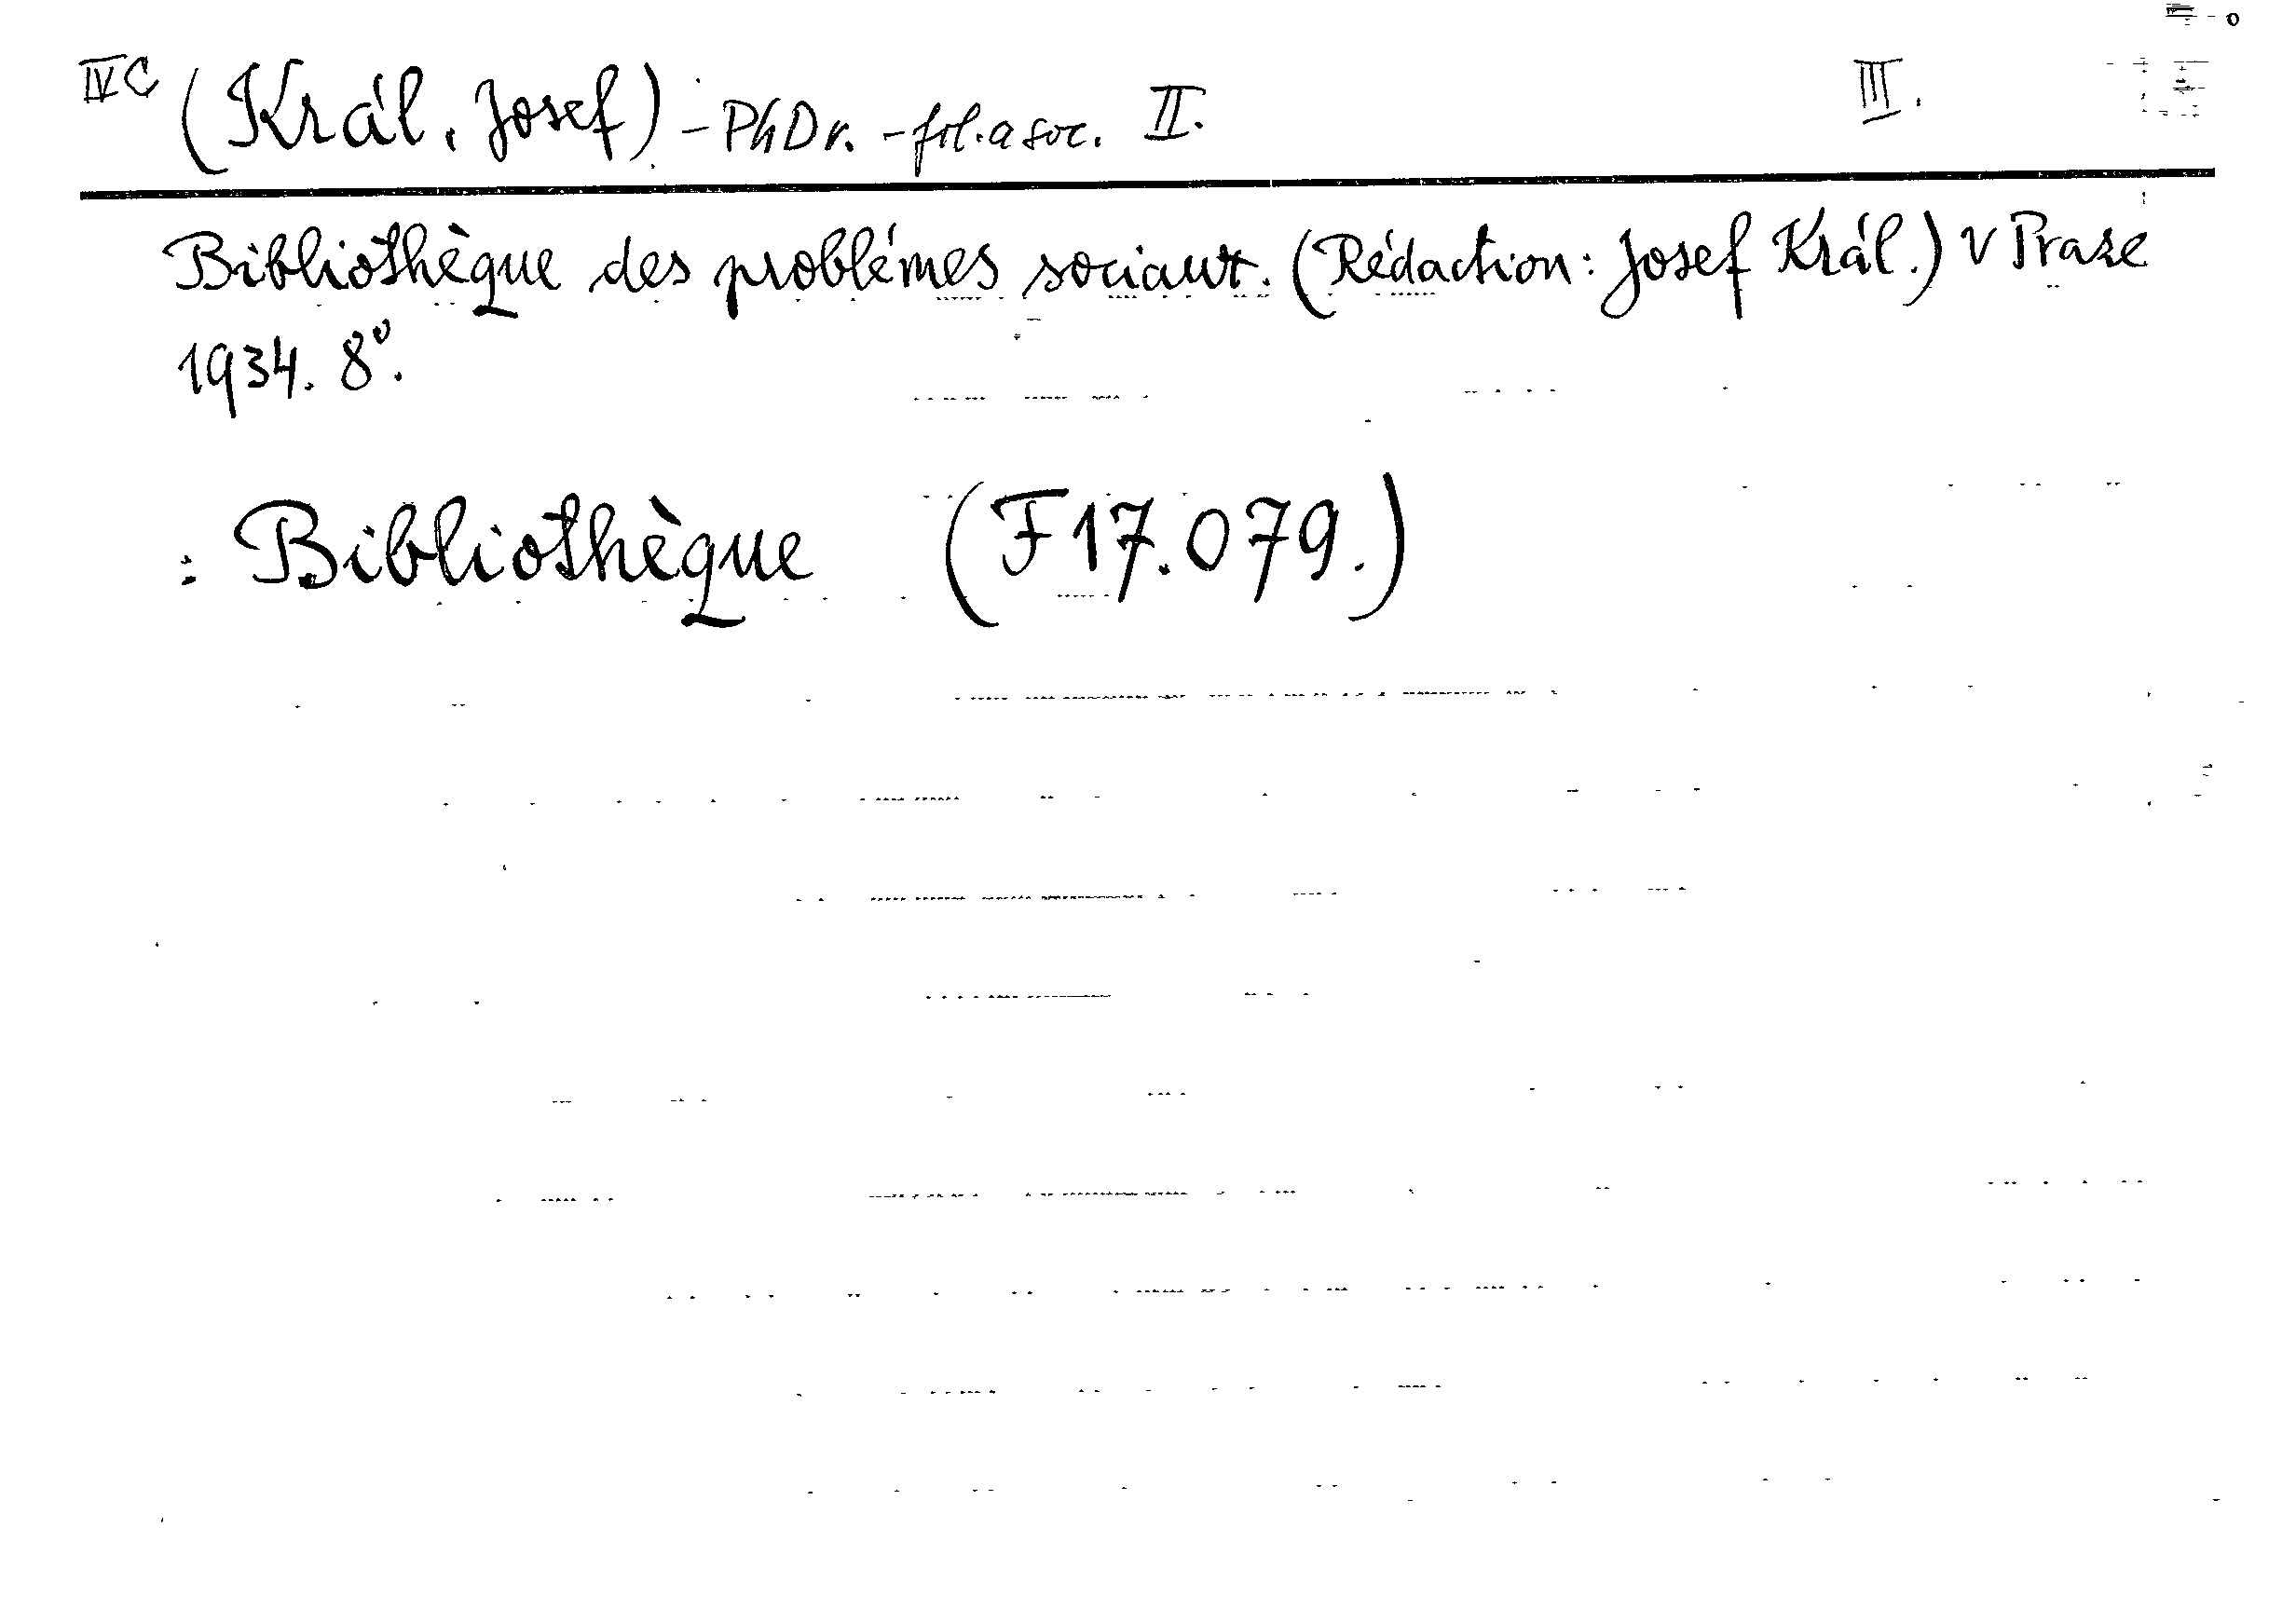 IVC (Král, Josef) - PhDr. - fil. a soc. II. III.
Bibliothèque des problémes sociaux. (Rédaction: Josef Král.) V Praze
1934. 8°.
: Bibliothèque (F 17.079.)